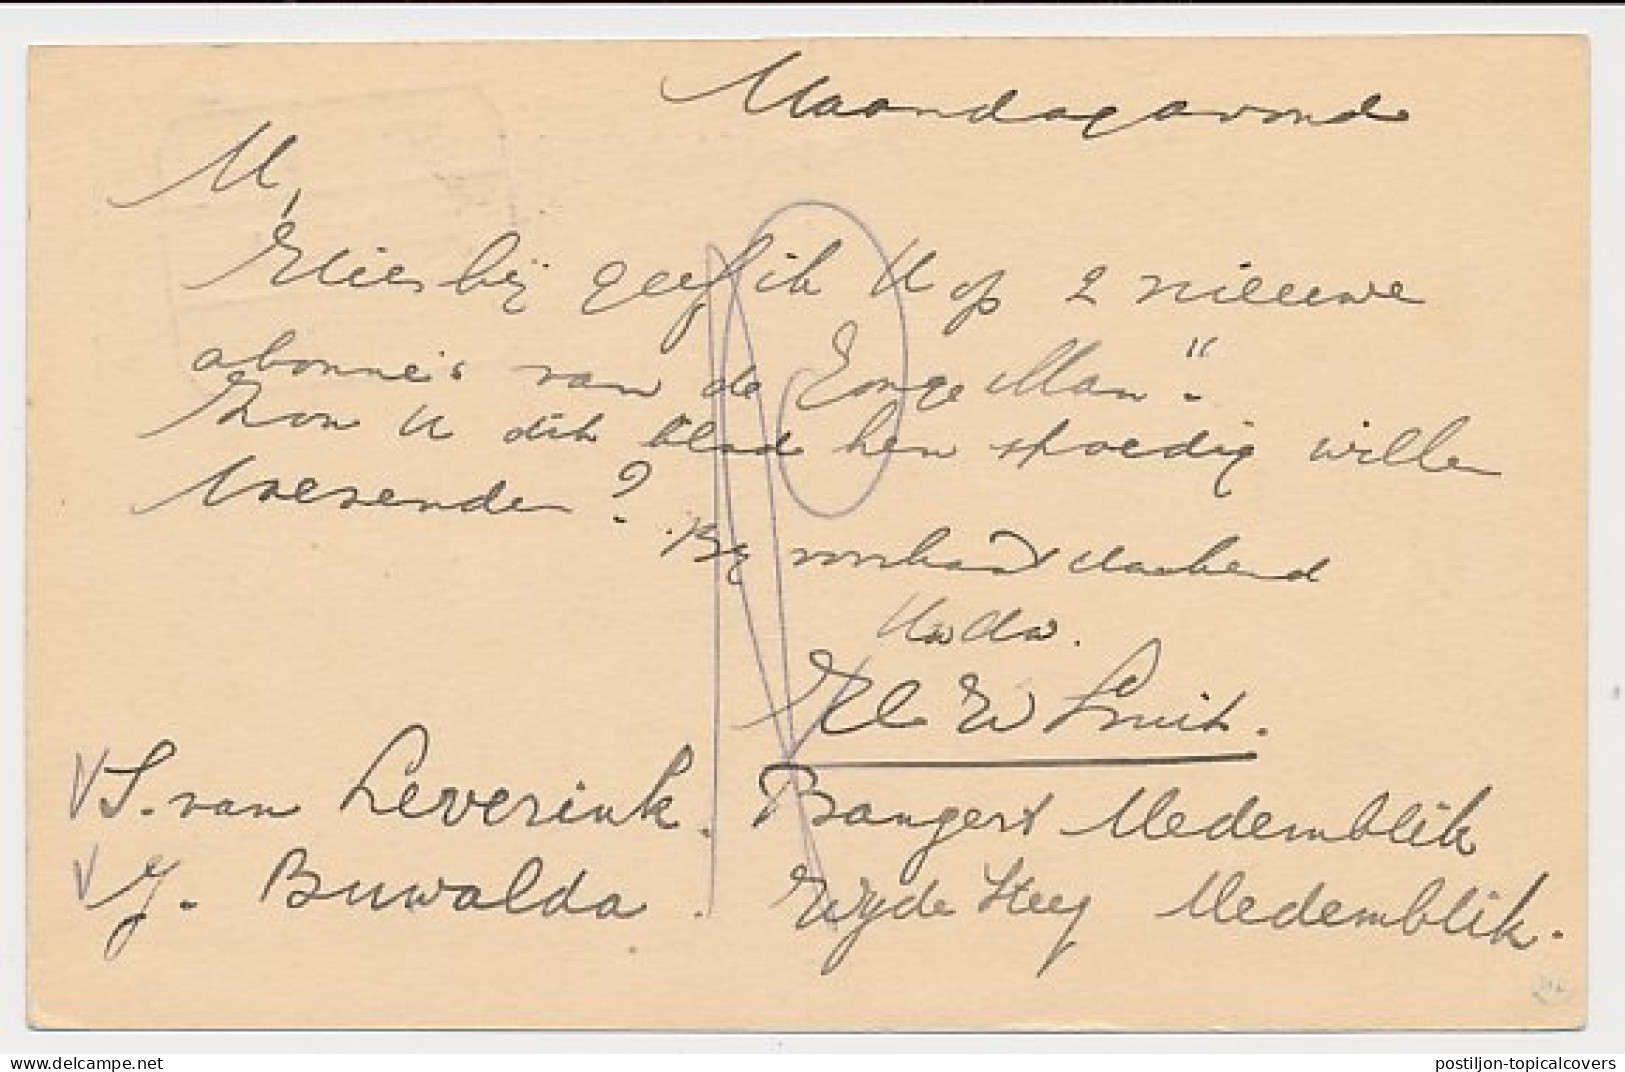 Maandagavond
M,
Hierbij geef ik U op 2 nieuwe
abonné's van de Jonge Man".
Zou U dit blad hen spoedig willen
toezenden?
Bij voorbaat dankend
Uw dw.
S. van Leverink. Bangert Medemblik
J. Buwalda. Wijde Steeg Medemblik.
www.delcampe.net
postiljon-topicalcovers